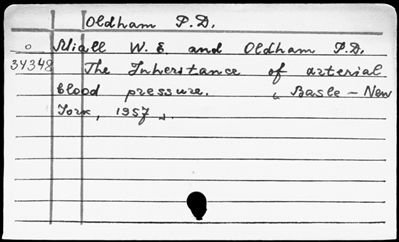 Oldham P.D.
o Miall W.E. and Oldham P.D.
34348 The Inheritance of arterial
blood pressure. Basle - New
York, 1957.